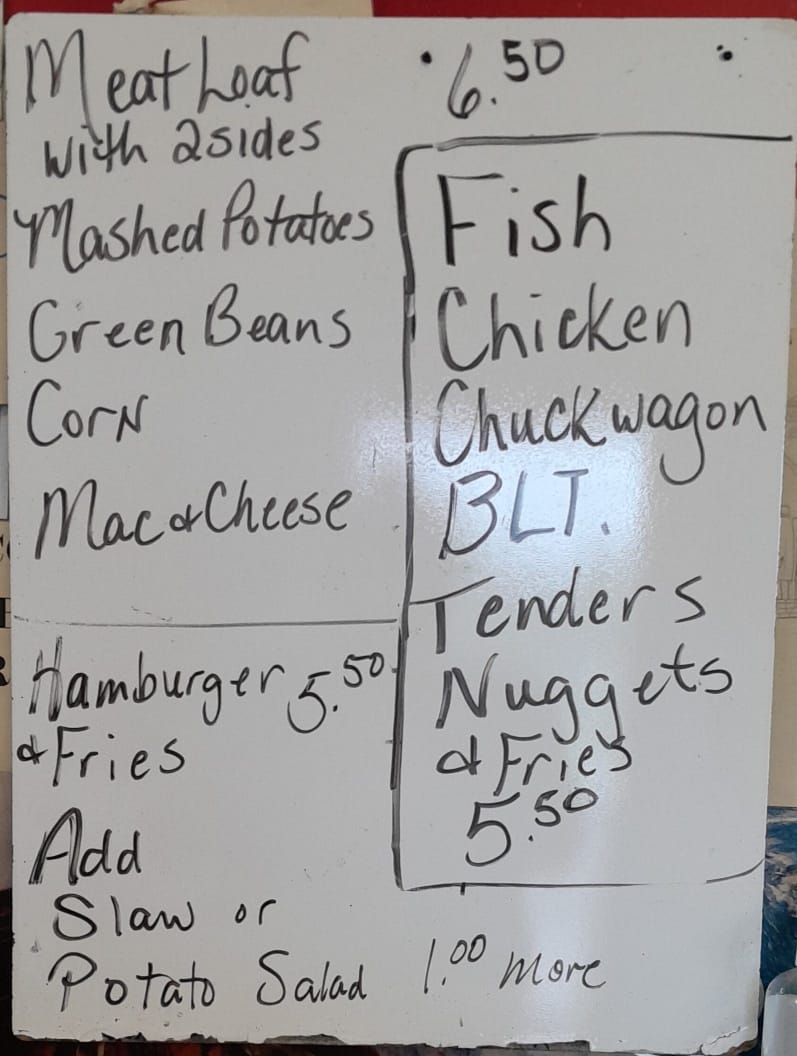 Meat Loaf 6.50
with 2 sides
Mashed Potatoes
Green Beans
Corn
Mac & Cheese
Hamburger 5.50
& Fries
Fish
Chicken
Chuckwagon
BLT.
Tenders
Nuggets
& Fries
5.50
Add
Slaw or
Potato Salad 1.00 more